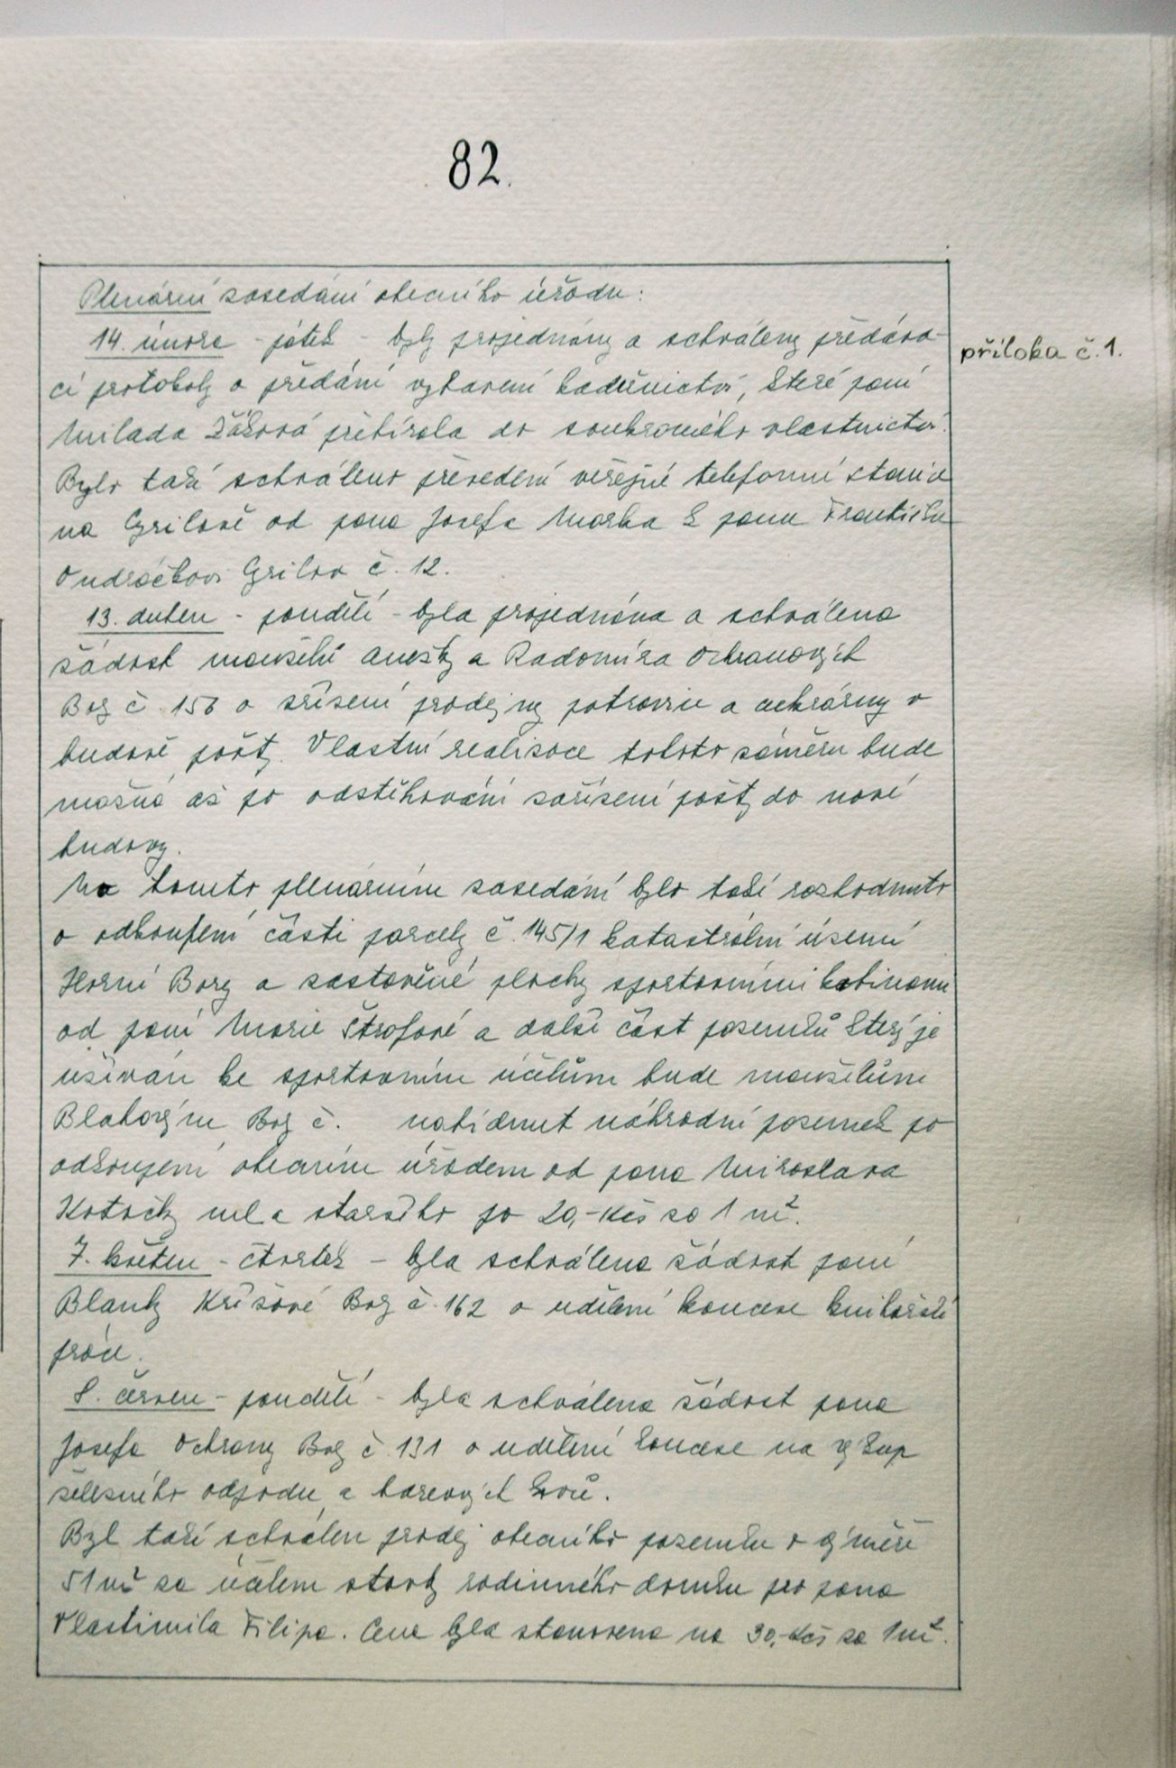 82.
Plenární zasedání obecního úřadu:
14. února - pátek - byly projednány a schváleny předáva-
příloha č.1.
cí protokoly o předání vybavení kadeřnictví, které paní
Milada přebírala do soukromého vlastnictví.
Bylo též schváleno převedení veřejné telefonní stanice
na Grilově od pana Josefa Marka k panu Františku
Ondráčkovi Grilov č. 12.
13. duben - pondělí - byla projednána a schválena
žádost manželů Anežky a Radomíra Ochranových
Bory č. 156 o zřízení prodejny potravin a cukrárny v
budově pošty. Vlastní realizace tohoto záměru bude
možná až po odstěhování zařízení pošty do nové
budovy.
Na tomto plenárním zasedání bylo též rozhodnuto
o odkoupení části parcely č. 145/1 katastrální území
Horní Bory a zastavěné plochy sportovními kabinami
od paní Marie Štrofové a další část pozemků který je
užíván ke sportovním účelům bude manželům
Blahovým Bory č. nabídnut náhradní pozemek po
odkoupení obecním úřadem od pana Miroslava
Kotačky ml a staršího po 20,-Kčs za 1 m².
7. květen - čtvrtek - byla schválena žádost paní
Blanky Křížové Bory č. 162 o udělení koncese knihařské
práce.
8. červen - pondělí - byla schválena žádost pana
Josefa Ochrany Bory č. 131 o udělení koncese na výkup
železného odpadu a barevných kovů.
Byl též schválen prodej obecního pozemku o výměře
51 m² za účelem stavby rodinného domku pro pana
Vlastimila Filipa. Cena byla stanovena na 30,-Kčs za 1m².